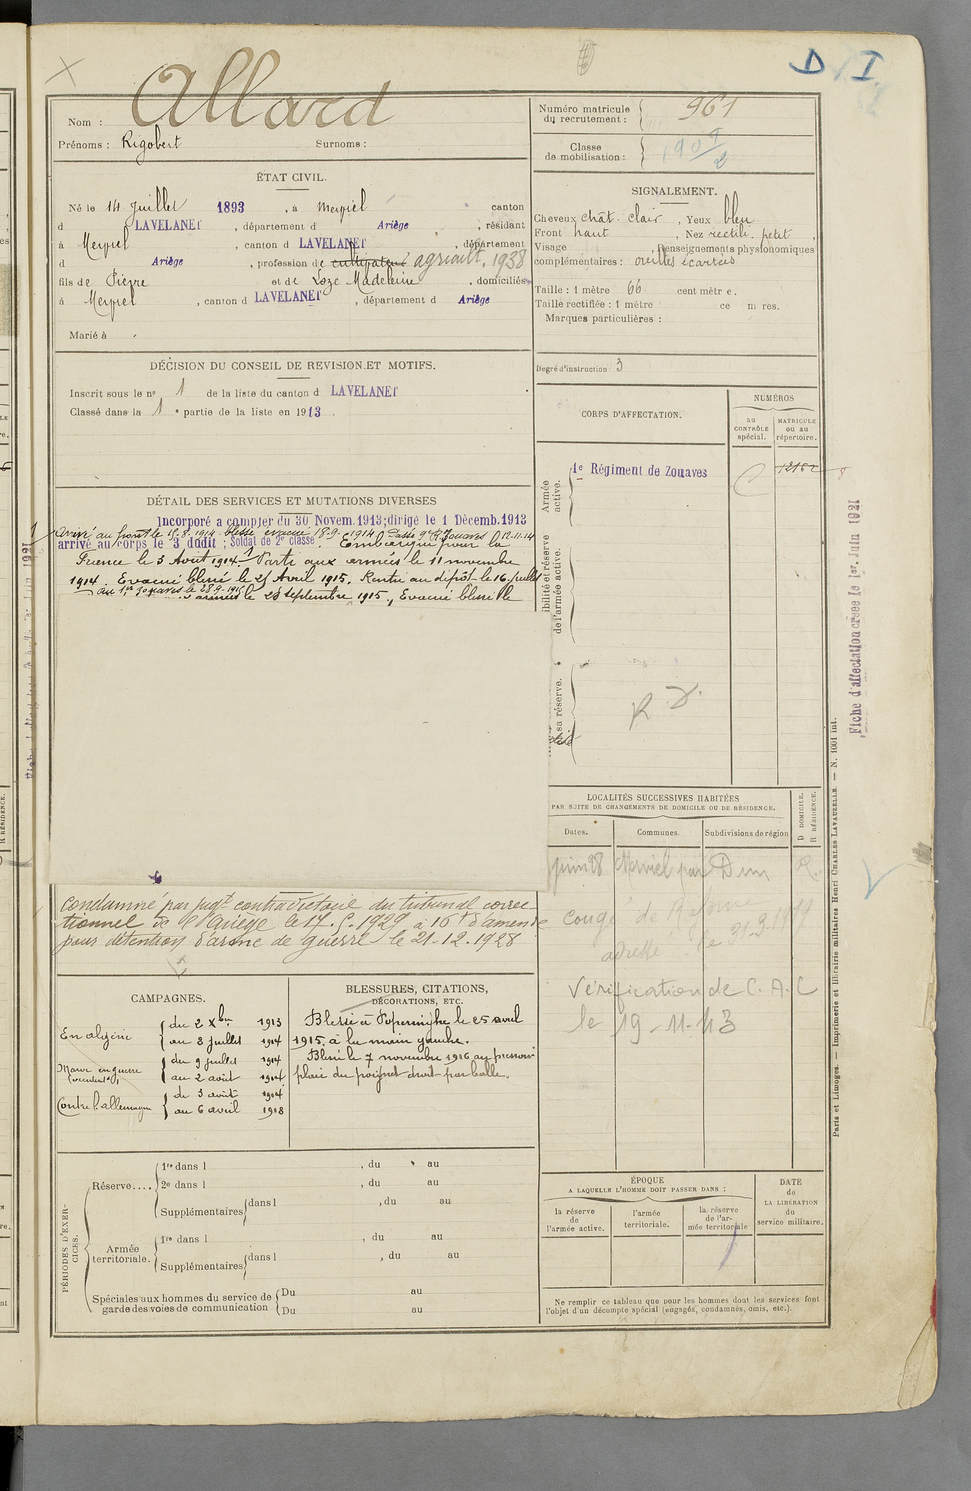 D I
Nom : Allard
Prénoms : Rigobert Surnoms :
Numéro matricule du recrutement : 961
Classe de mobilisation : 1909/2
ÉTAT CIVIL.
Né le 14 juillet 1893, à Meyriel canton
d LAVELANET, département d Ariège, résidant
à Meyriel, canton d LAVELANET, département
d Ariège, profession de cultivateur agricult. 1938
fils de Pierre et de Loze Madeleine, domiciliés
à Meyriel, canton d LAVELANET, département d Ariège
Marié à
SIGNALEMENT.
Cheveux chât. clair, Yeux bleu
Front haut, Nez rectili. petit,
Visage , Renseignements physionomiques
complémentaires : oreilles écartées
Taille : 1 mètre 66 centimètre.
Taille rectifiée : 1 mètre ce m res.
Marques particulières :
Degré d'instruction : 3
DÉCISION DU CONSEIL DE REVISION ET MOTIFS.
Inscrit sous le nº 1 de la liste du canton d LAVELANET
Classé dans la 1e partie de la liste en 1913.
DÉTAIL DES SERVICES ET MUTATIONS DIVERSES
Incorporé a compter du 30 Novem. 1913; dirigé le 1 Décemb. 1913
Arrivé au front le 15.8.1914 blessé évacué 18.9.1914 Passé 9e R. Zouaves 12.11.14
arrivé au corps le 3 dudit ; Soldat de 2e classe. Embarqué pour la
France le 3 Août 1914. Parti aux armées le 11 novembre
1914. Evacué blessé le 25 Avril 1915. Rentré au dépôt le 16 juillet
au 1er Zouaves le 28.9.1915
armées le 28 septembre 1915, Evacué blessé le
Condamné par jugt contradictoire du tribunal correc-
tionnel de l'Ariège le 17.5.1929 à 16 f d'amende
pour détention d'arme de guerre le 21-12-1928
CORPS D'AFFECTATION.
NUMÉROS
au CONTRÔLE spécial.
MATRICULE ou au répertoire.
Armée active.
1e Régiment de Zouaves
C
ibilité et réserve de l'armée active.
sa réserve.
R D.
Fiche d'affectation créée le 1er Juin 1921
LOCALITÉS SUCCESSIVES HABITÉES
PAR SUITE DE CHANGEMENTS DE DOMICILE OU DE RÉSIDENCE.
Dates. Communes. Subdivisions de région
D DOMICILE.
R RÉSIDENCE.
juin 28 Merviel par Dun R.
Congé de Réforme
adressé le 31.3.1919
Vérification de C.A.C
le 19-11-43
CAMPAGNES.
En algérie
du 2 Xbre 1913
au 8 juillet 1914
Maroc en guerre
(occidental)
du 9 juillet 1914
au 2 août 1914
Contre l'allemagne
du 3 août 1914
au 6 avril 1918
BLESSURES, CITATIONS,
DÉCORATIONS, ETC.
Blessé à Poperinghe le 25 avril
1915 à la main gauche.
Blessé le 7 novembre 1916 au pressoir
plaie du poignet droit par balle.
PÉRIODES D'EXERCICES.
Réserve....
1re dans l , du au
2e dans l , du au
Supplémentaires dans l , du au
Armée territoriale.
1re dans l , du au
Supplémentaires dans l , du au
Spéciales aux hommes du service de garde des voies de communication
Du au
Du au
ÉPOQUE
A LAQUELLE L'HOMME DOIT PASSER DANS :
la réserve de l'armée active.
l'armée territoriale.
la réserve de l'armée territoriale
DATE de LA LIBÉRATION du service militaire.
Ne remplir ce tableau que pour les hommes dont les services font
l'objet d'un décompte spécial (engagés, condamnés, omis, etc.).
Paris et Limoges. — Imprimerie et librairie militaires Henri CHARLES-LAVAUZELLE. — N. 1001 int.